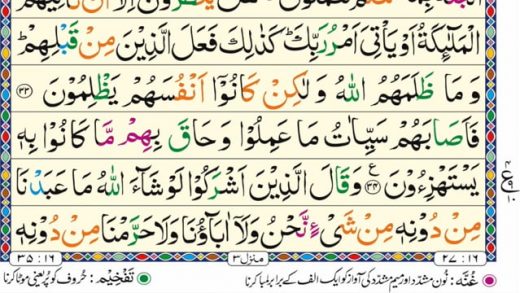 الْمَلٰٓئِكَةُ اَوْ يَاْتِىَ اَمْرُ رَبِّكَ ؕ كَذٰلِكَ فَعَلَ الَّذِيْنَ مِنْ قَبْلِهِمْ ؕ
وَ مَا ظَلَمَهُمُ اللّٰهُ وَ لٰكِنْ كَانُوْۤا اَنْفُسَهُمْ يَظْلِمُوْنَ ﴿۳۳﴾
فَاَصَابَهُمْ سَيِّاٰتُ مَا عَمِلُوْا وَ حَاقَ بِهِمْ مَّا كَانُوْا بِهٖ
يَسْتَهْزِءُوْنَ ﴿۳۴﴾ ع وَ قَالَ الَّذِيْنَ اَشْرَكُوْا لَوْ شَآءَ اللّٰهُ مَا عَبَدْنَا
مِنْ دُوْنِهٖ مِنْ شَىْءٍ نَّحْنُ وَ لَاۤ اٰبَآؤُنَا وَ لَا حَرَّمْنَا مِنْ دُوْنِهٖ
۲۷ : ۱۶ منزل ۳ ۳۵ : ۱۶
غُنَّہ: نون مشدّد اور میم مشدّد کی آواز کو ایک الف کے برابر لمبا کرنا تَفْخِیْم: حُروف کو پُر یعنی موٹا کرنا